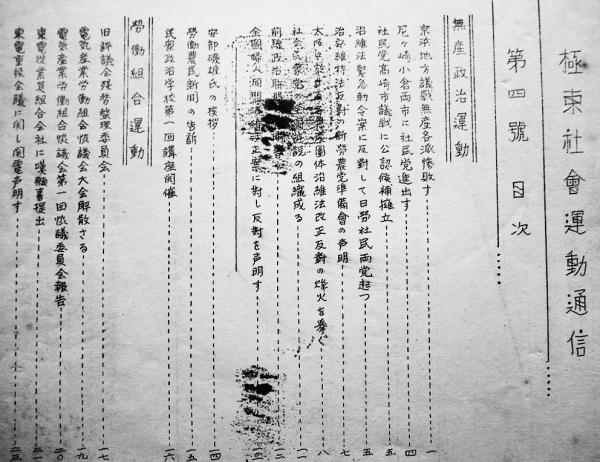 極東社會運動通信
第四號 目次
無産政治運動
京浜地方議戰無産各派惨敗す 一
尼ヶ崎小倉両市に社民党進出す 四
社民党高崎市議戰に公認候補擁立 五
治維法緊急勅令案に反対して日勞社民両党起つ 五
治安維持法反対の新勞農党準備會の声明 七
団体治維法改正反對の烽火を擧ぐ 八
組織成る 一一
前線政治聯盟 一二
全國婦人同盟 正案に對し反對を声明す 一三
安部磯雄氏の挨拶 一四
勞働農民新聞の告訴 一五
民衆政治学校第一回講座開催 一六
勞働組合運動
旧評議会残務整理委員会 一七
電気産業労働組合協議会大会解散さる 一九
電気産業労働組合協議会第一回協議委員会報告 二〇
東電従業員組合会社に嘆願書提出 二一
東電重役会議に関し関電声明す 二三